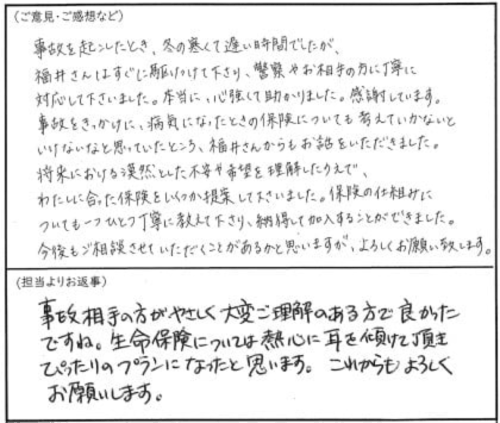 (ご意見・ご感想など)
事故を起こしたとき、冬の寒くて遅い時間でしたが、
福井さんはすぐに駆けつけて下さり、警察やお相手の方に丁寧に
対応して下さいました。本当に、心強くて助かりました。感謝しています。
事故をきっかけに、病気になったときの保険についても考えていかないと
いけないなと思っていたところ、福井さんからもお話をいただきました。
将来における漠然とした不安や希望を理解したうえで、
わたしに合った保険をいくつか提案して下さいました。保険の仕組みに
ついても一つひとつ丁寧に教えて下さり、納得して加入することができました。
今後もご相談させていただくことがあるかと思いますが、よろしくお願い致します。
(担当よりお返事)
事故相手の方がやさしく大変ご理解のある方で良かった
ですね。生命保険については熱心に耳を傾けて頂き
ぴったりのプランになったと思います。これからもよろしく
お願いします。